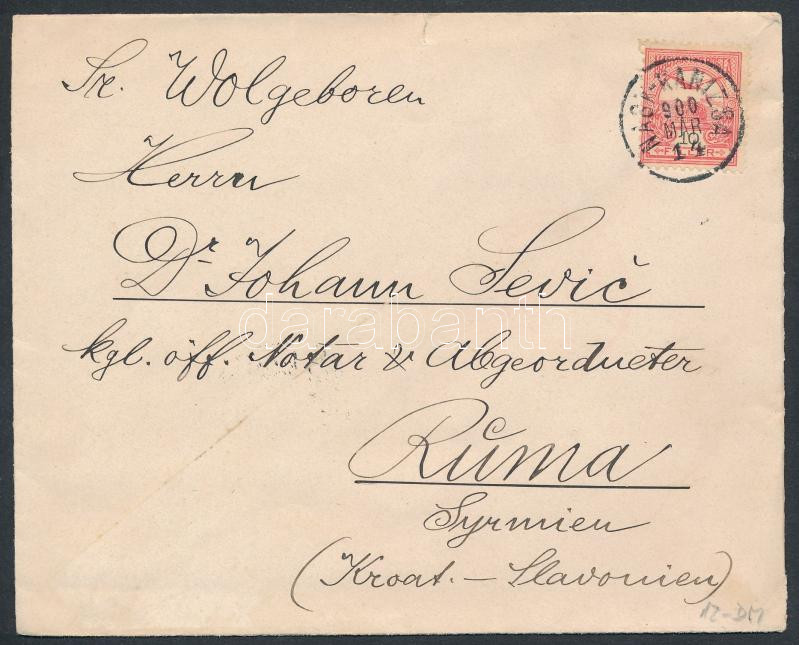 Sr. Wolgeboren
Herrn
Dr. Johann Sević
kgl. öff. Notar & Abgeordneter
Ruma
Syrmien
(Kroat. – Slavonien)
NAGY-KANIZSA
900
MÁR
14
10
FILLÉR
darabanth
12-DM